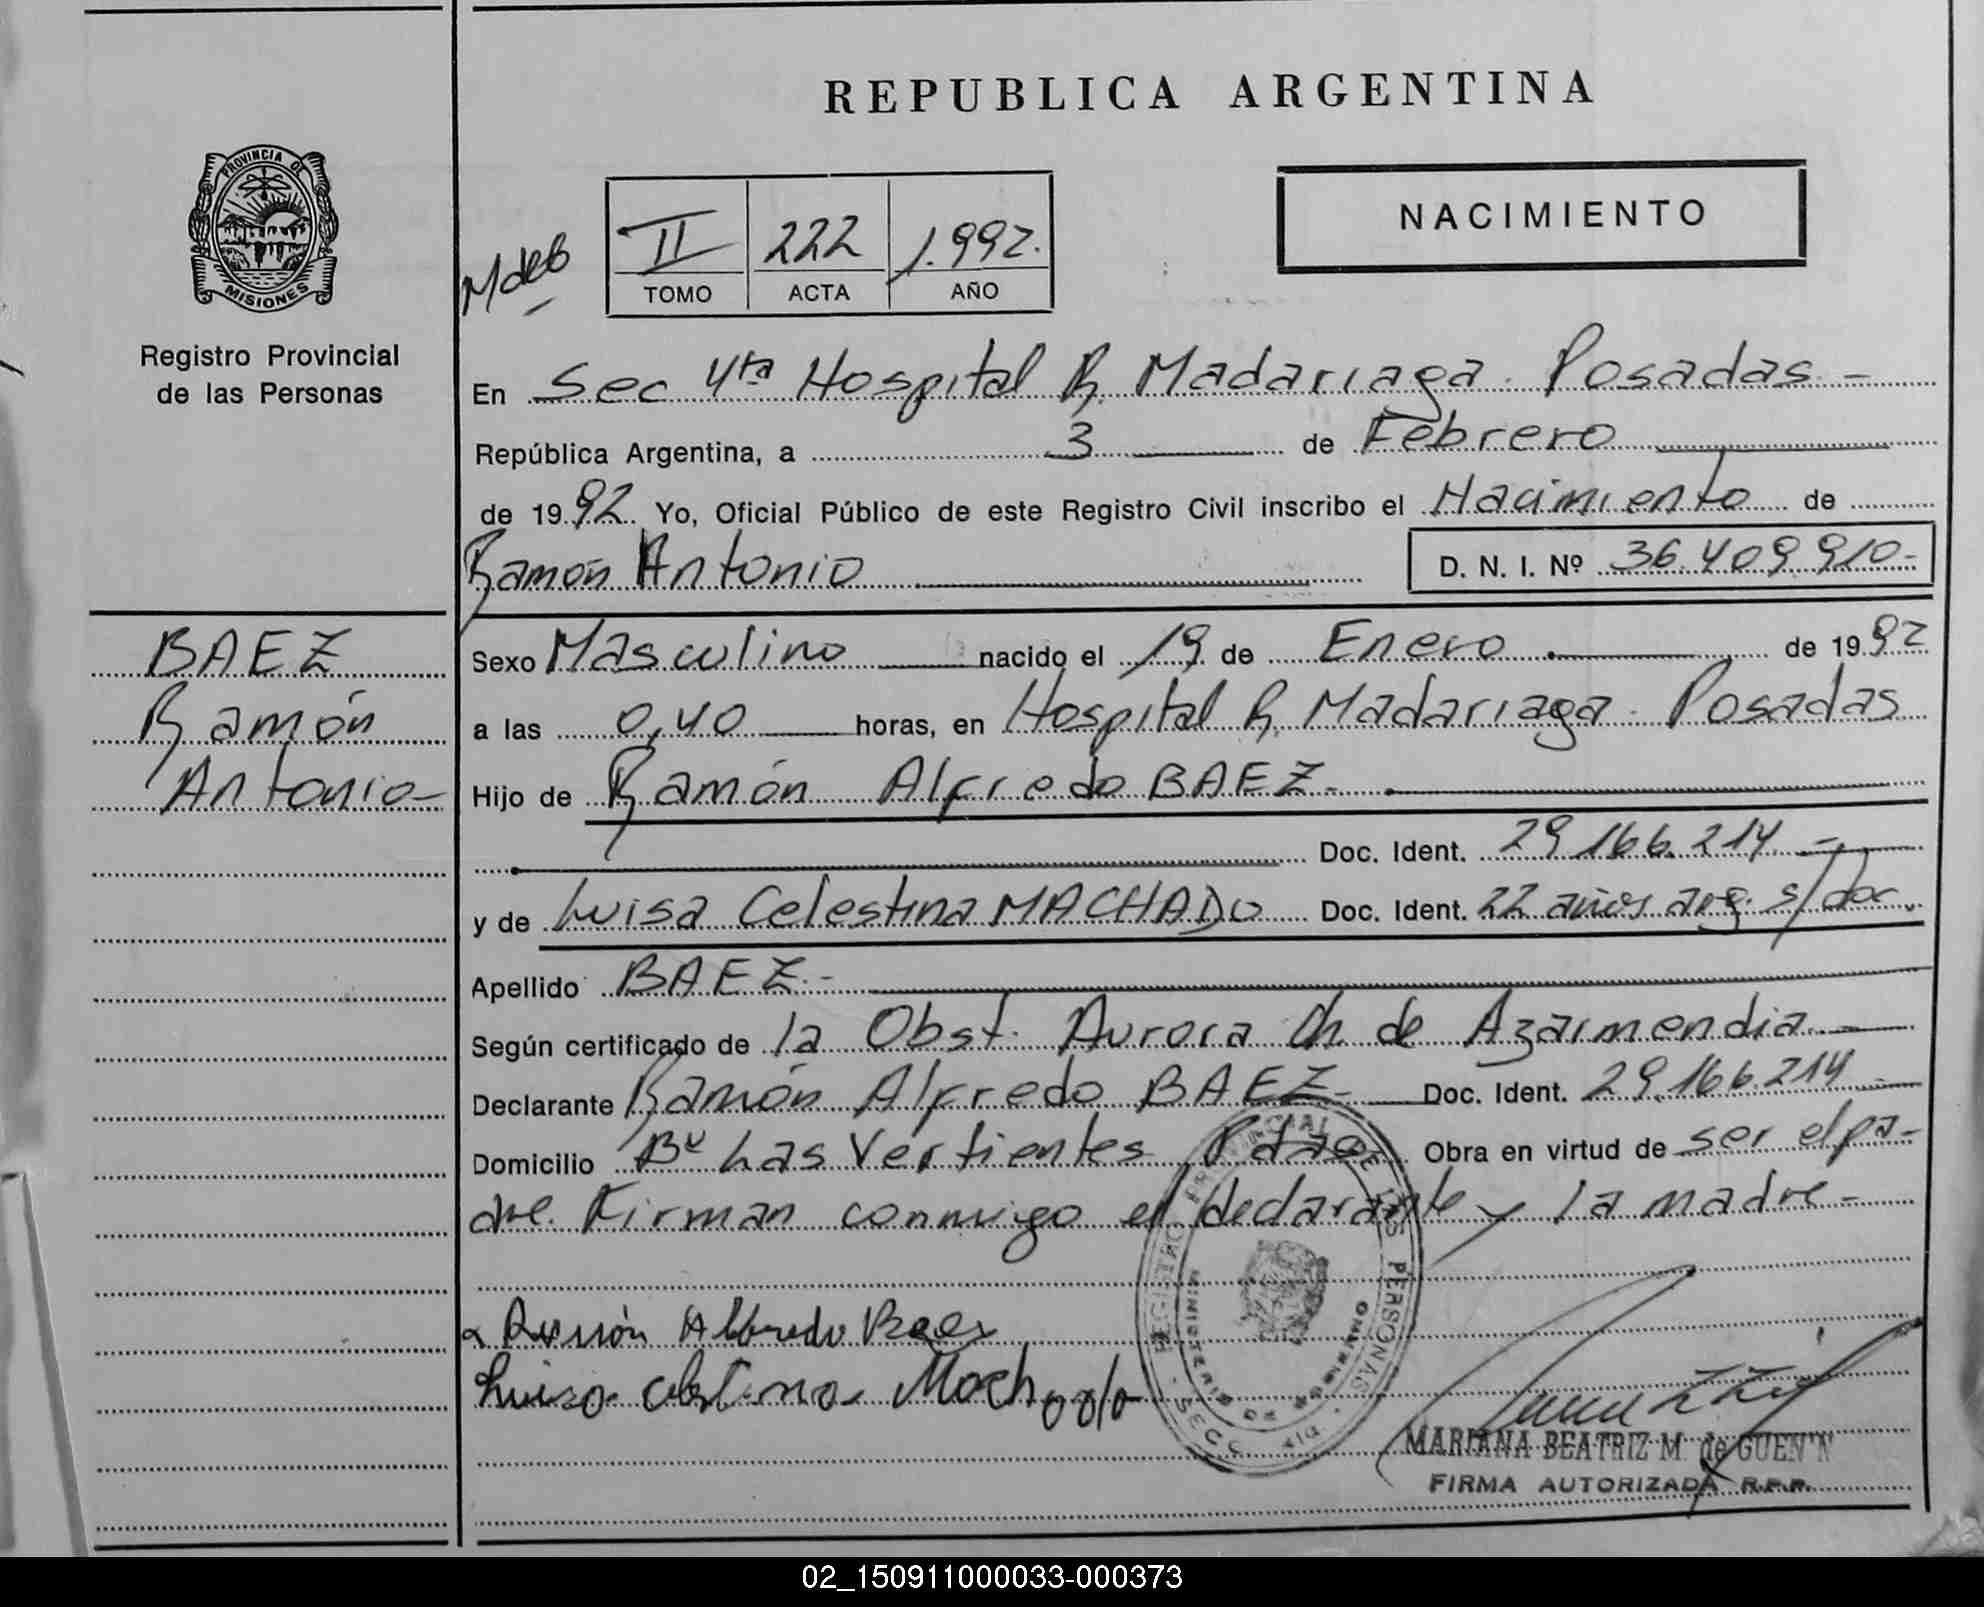 REPUBLICA ARGENTINA
PROVINCIA DE
MISIONES
Registro Provincial
de las Personas
NACIMIENTO
II 222 1.992.
TOMO ACTA AÑO
En Sec 4ta Hospital R. Madariaga. Posadas.-
República Argentina, a 3 de Febrero
de 1992 Yo, Oficial Público de este Registro Civil inscribo el Nacimiento de
Ramón Antonio D. N. I. Nº 36.409.910-
BAEZ
Ramón
Antonio-
Sexo Masculino nacido el 19 de Enero de 1992
a las 0,40 horas, en Hospital R. Madariaga. Posadas
Hijo de Ramón Alfredo BAEZ-
Doc. Ident. 29.166.214-
y de Luisa Celestina MACHADO Doc. Ident. 22 años arg. s/Doc.
Apellido BAEZ.-
Según certificado de la Obst. Aurora Ch. de Azarmendia-
Declarante Ramón Alfredo BAEZ- Doc. Ident. 29.166.214-
Domicilio Bº Las Vertientes Pdas Obra en virtud de ser el pa-
dre. Firman conmigo el declarante y la madre-
Ramón Alfredo Baez
Luisa Celestina Machado
REGISTRO PROVINCIAL DE LAS PERSONAS
MINISTERIO DE GOBIERNO
SECC.
MARIANA BEATRIZ M. de GUEN'N
FIRMA AUTORIZADA R.P.P.
02_150911000033-000373